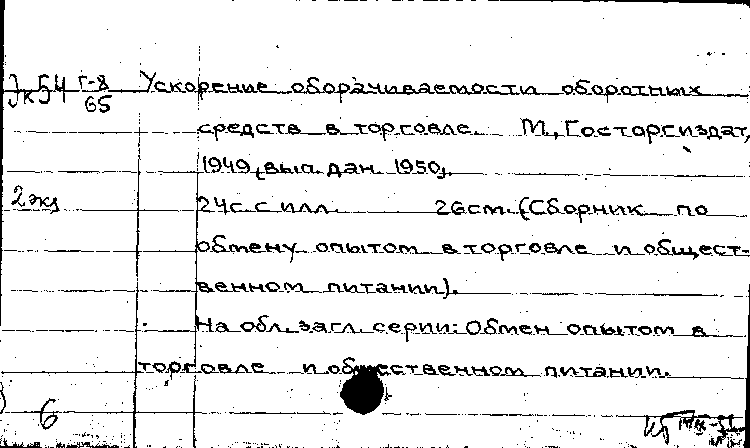 Эк54 Г-8 Ускорение оборачиваемости оборотных
65
средств в торговле. М., Госторгиздат,
1949, вып. дан. 1950.
2 экз 24с. с илл. 26см. (Сборник по
обмену опытом в торговле и общест-
венном питании).
На обл. загл. серии: Обмен опытом в
торговле и общественном питании.
6